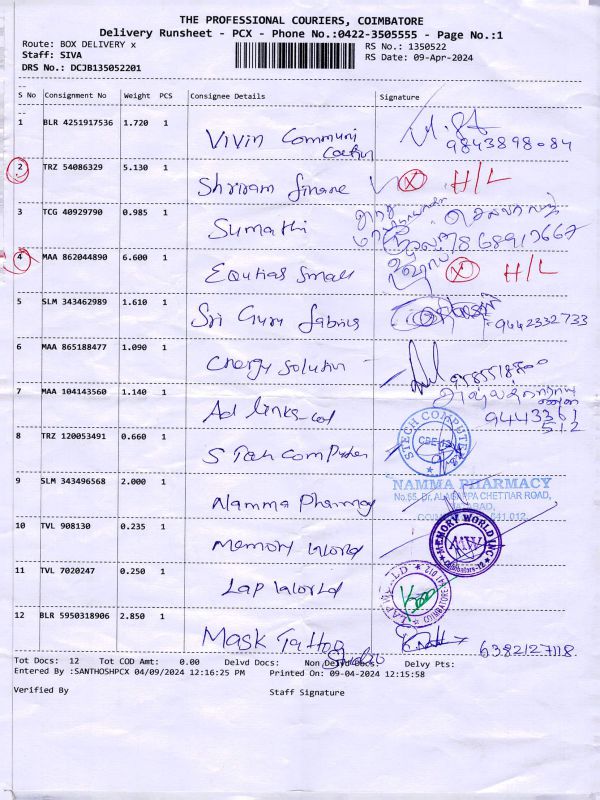 THE PROFESSIONAL COURIERS, COIMBATORE
Delivery Runsheet - PCX - Phone No.:0422-3505555 - Page No.:1
Route: BOX DELIVERY x
RS No.: 1350522
Staff: SIVA
RS Date: 09-Apr-2024
DRS No.: DCJB135052201
S No Consignment No Weight PCS Consignee Details Signature
1 BLR 4251917536 1.720 1 Vivin Communi
cation
9843898084
2 TRZ 54086329 5.130 1 Shriram finane H/L
3 TCG 40929790 0.985 1 Sumathi
7868917667
4 MAA 862044890 6.600 1 Equtias Small H/L
5 SLM 343462989 1.610 1 Sri Guru fabrics
9442332733
6 MAA 865188477 1.090 1 Energy Solution
7 MAA 104143560 1.140 1 Ad links
9443361
512
8 TRZ 120053491 0.660 1 S Tech Computer
STECH COMPUTERS
CBE-12
9 SLM 343496568 2.000 1 Namma Pharmacy
NAMMA PHARMACY
No.55, Dr. ALAGAPPA CHETTIAR ROAD,
ROAD,
641 012
10 TVL 908130 0.235 1 Memory World
MEMORY WORLD INC
MW
Coimbatore-12
11 TVL 7020247 0.250 1 Lap World
COIMBATORE 641 012
12 BLR 5950318906 2.850 1 Mask Tattoo
Studio
6382127118
Tot Docs: 12 Tot COD Amt: 0.00 Delvd Docs: Non Delvd Docs: Delvy Pts:
Entered By :SANTHOSHPCX 04/09/2024 12:16:25 PM Printed On: 09-04-2024 12:15:58
Verified By Staff Signature